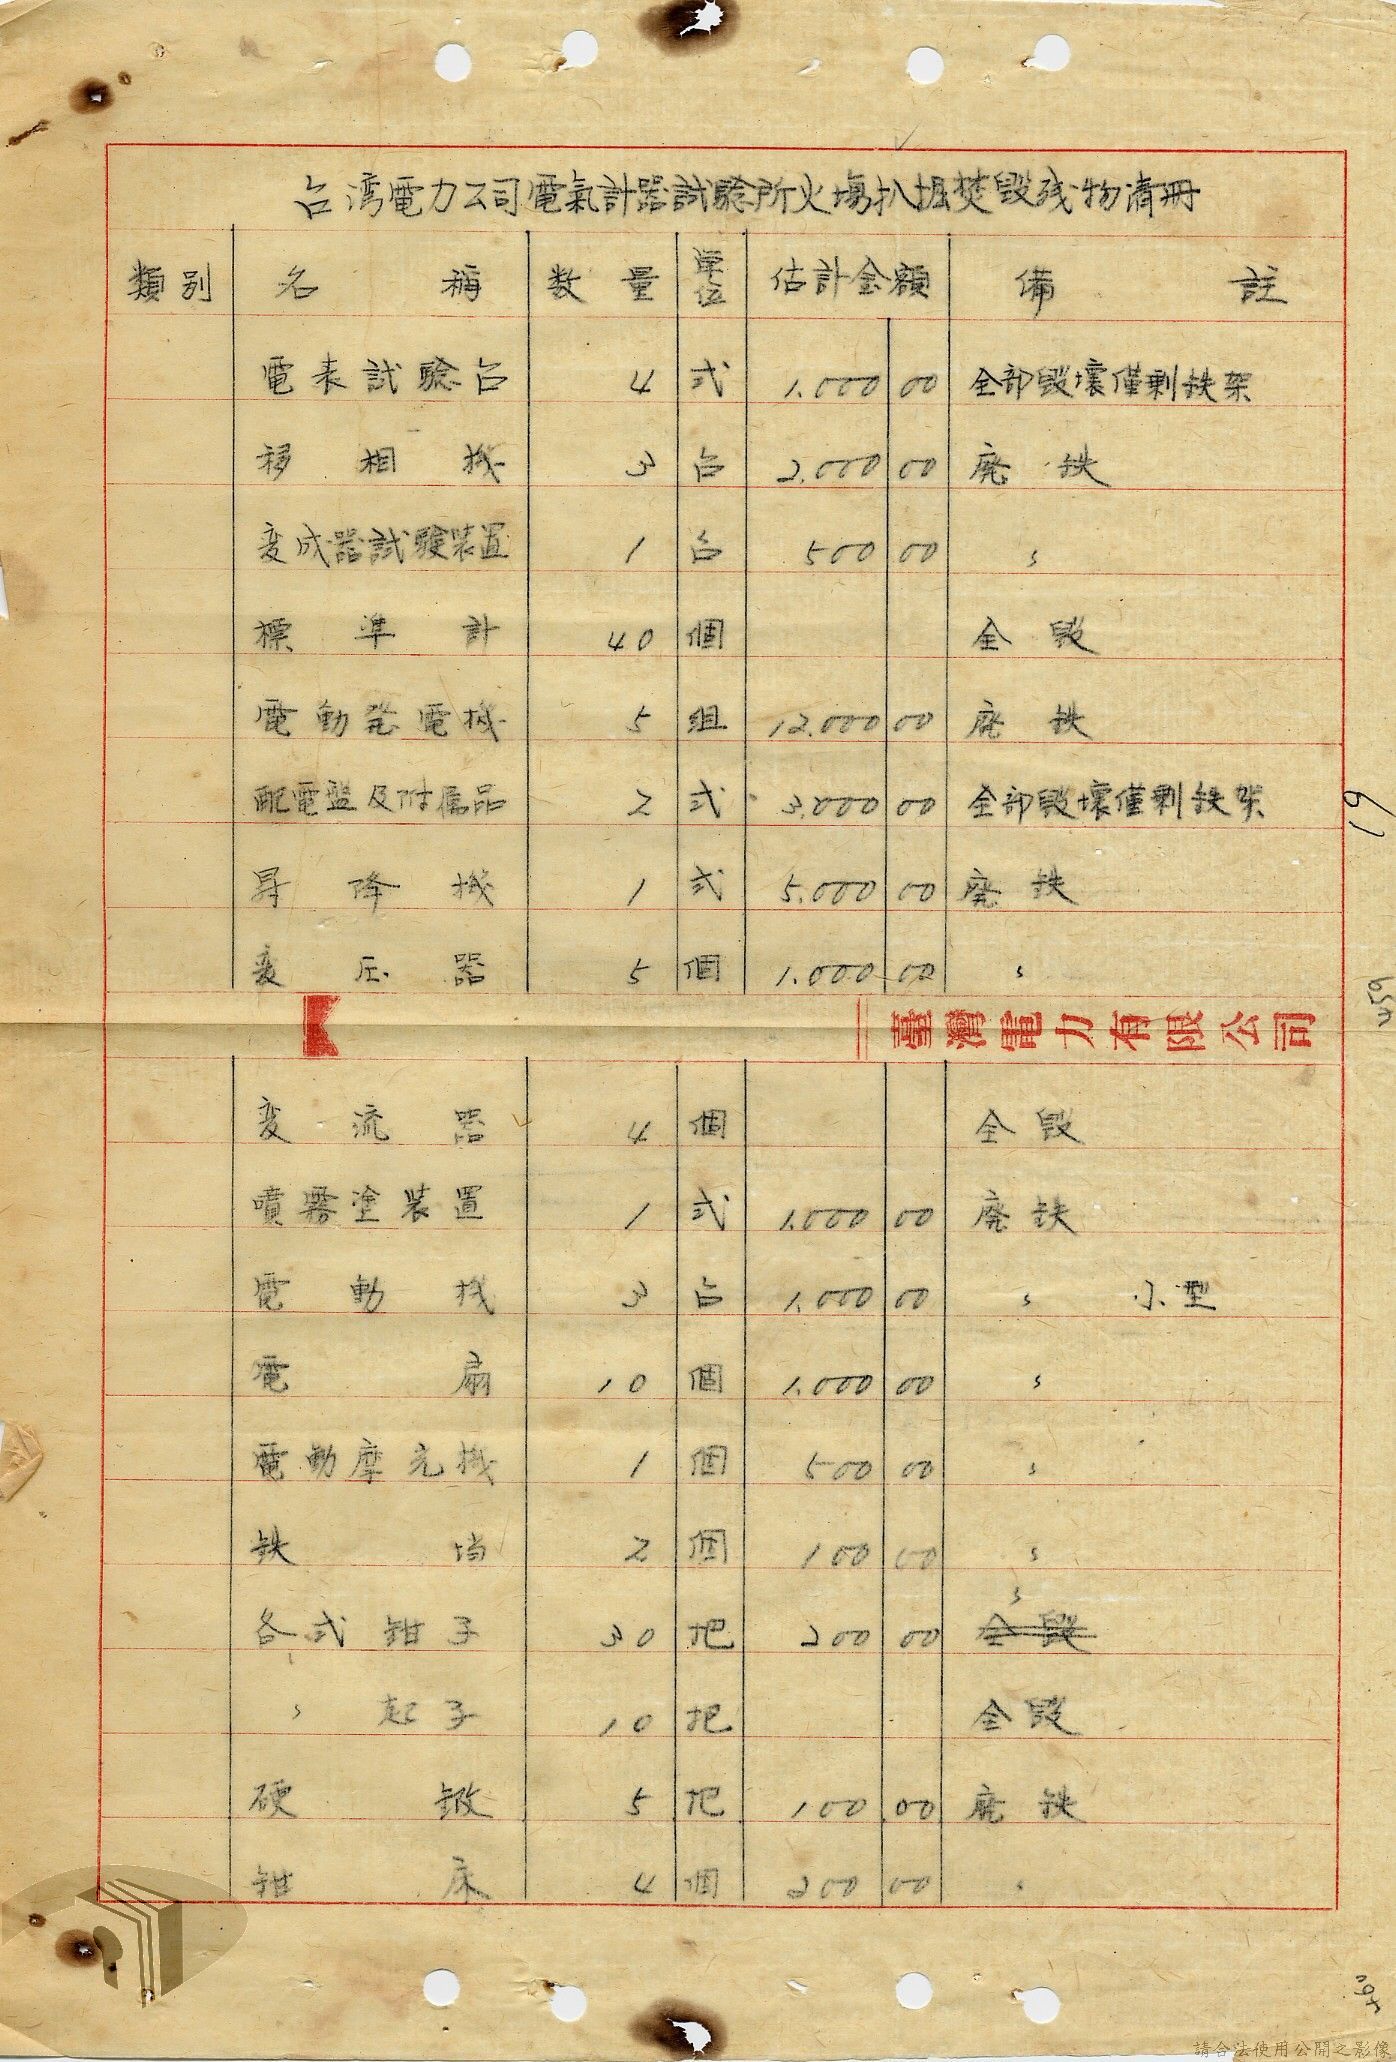 台湾電力公司電氣計器試驗所火場扒掘焚毀残物清冊
類別 名稱 数量 單位 估計金額 備註
電表試驗台 4 式 1,000 00 全部毀壞僅剩鉄架
移相機 3 台 2,000 00 廃鉄
変成器試驗裝置 1 台 500 00 〃
標準計 40 個 全毀
電動発電機 5 組 12,000 00 廃鉄
配電盤及附属品 2 式 3,000 00 全部毀壞僅剩鉄架
昇降機 1 式 5,000 00 廃鉄
変圧器 5 個 1,000 00 〃
臺灣電力有限公司
変流器 4 個 全毀
噴霧塗裝置 1 式 1,000 00 廃鉄
電動機 3 台 1,000 00 〃 小型
電扇 10 個 1,000 00 〃
電動摩光機 1 個 500 00 〃
鉄 2 個 100 00 〃
各式鉗子 30 把 200 00 〃 全毀
〃 起子 10 把 全毀
硬 5 把 100 00 廃鉄
鉗床 4 個 200 00 〃
61
請合法使用公開之影像